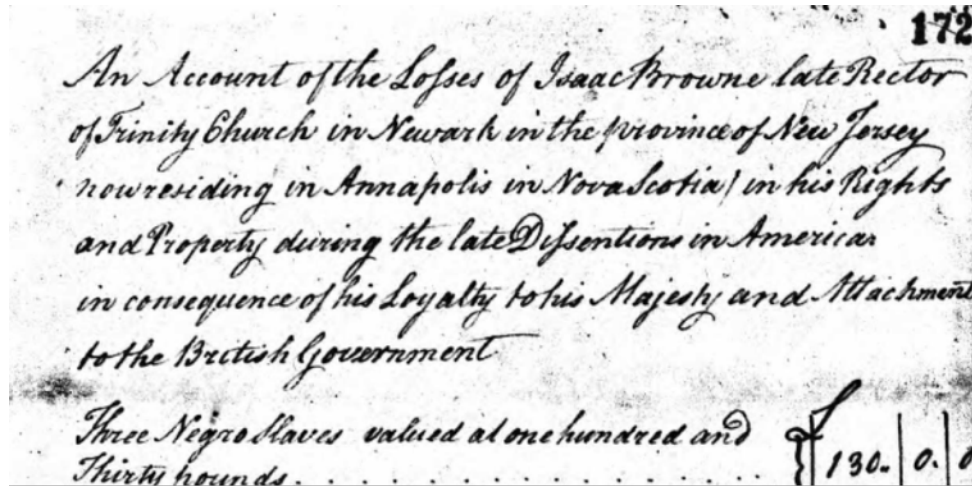 172
An Account of the Losses of Isaac Browne late Rector
of Trinity Church in Newark in the province of New Jersey
now residing in Annapolis in Nova Scotia / in his Rights
and Property during the late Dissentions in America
in consequence of his Loyalty to his Majesty and Attachment
to the British Government
£
Three Negro Slaves valued at one hundred and
Thirty pounds . . . . . . . . . . . 130. 0. 0